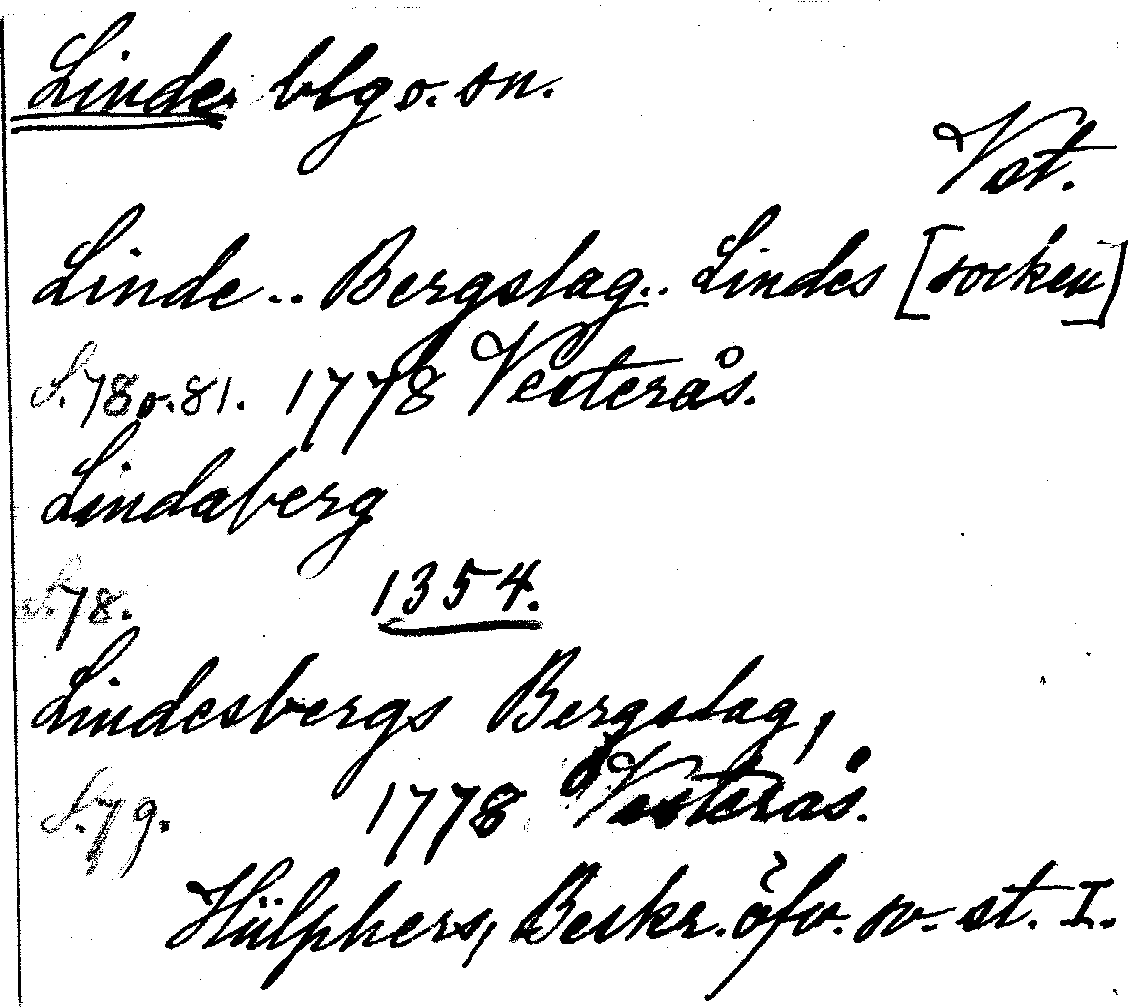 Linde blg o. sn.
Vst.
Linde .. Bergslag .. Lindes [socken]
S. 78 o. 81. 1778 Vesterås.
Lindaberg
S. 78. 1354.
Lindesbergs Bergslag,
S. 79. 1778 Vesterås.
Hülphers, Beskr. öfv. sv. st. I.